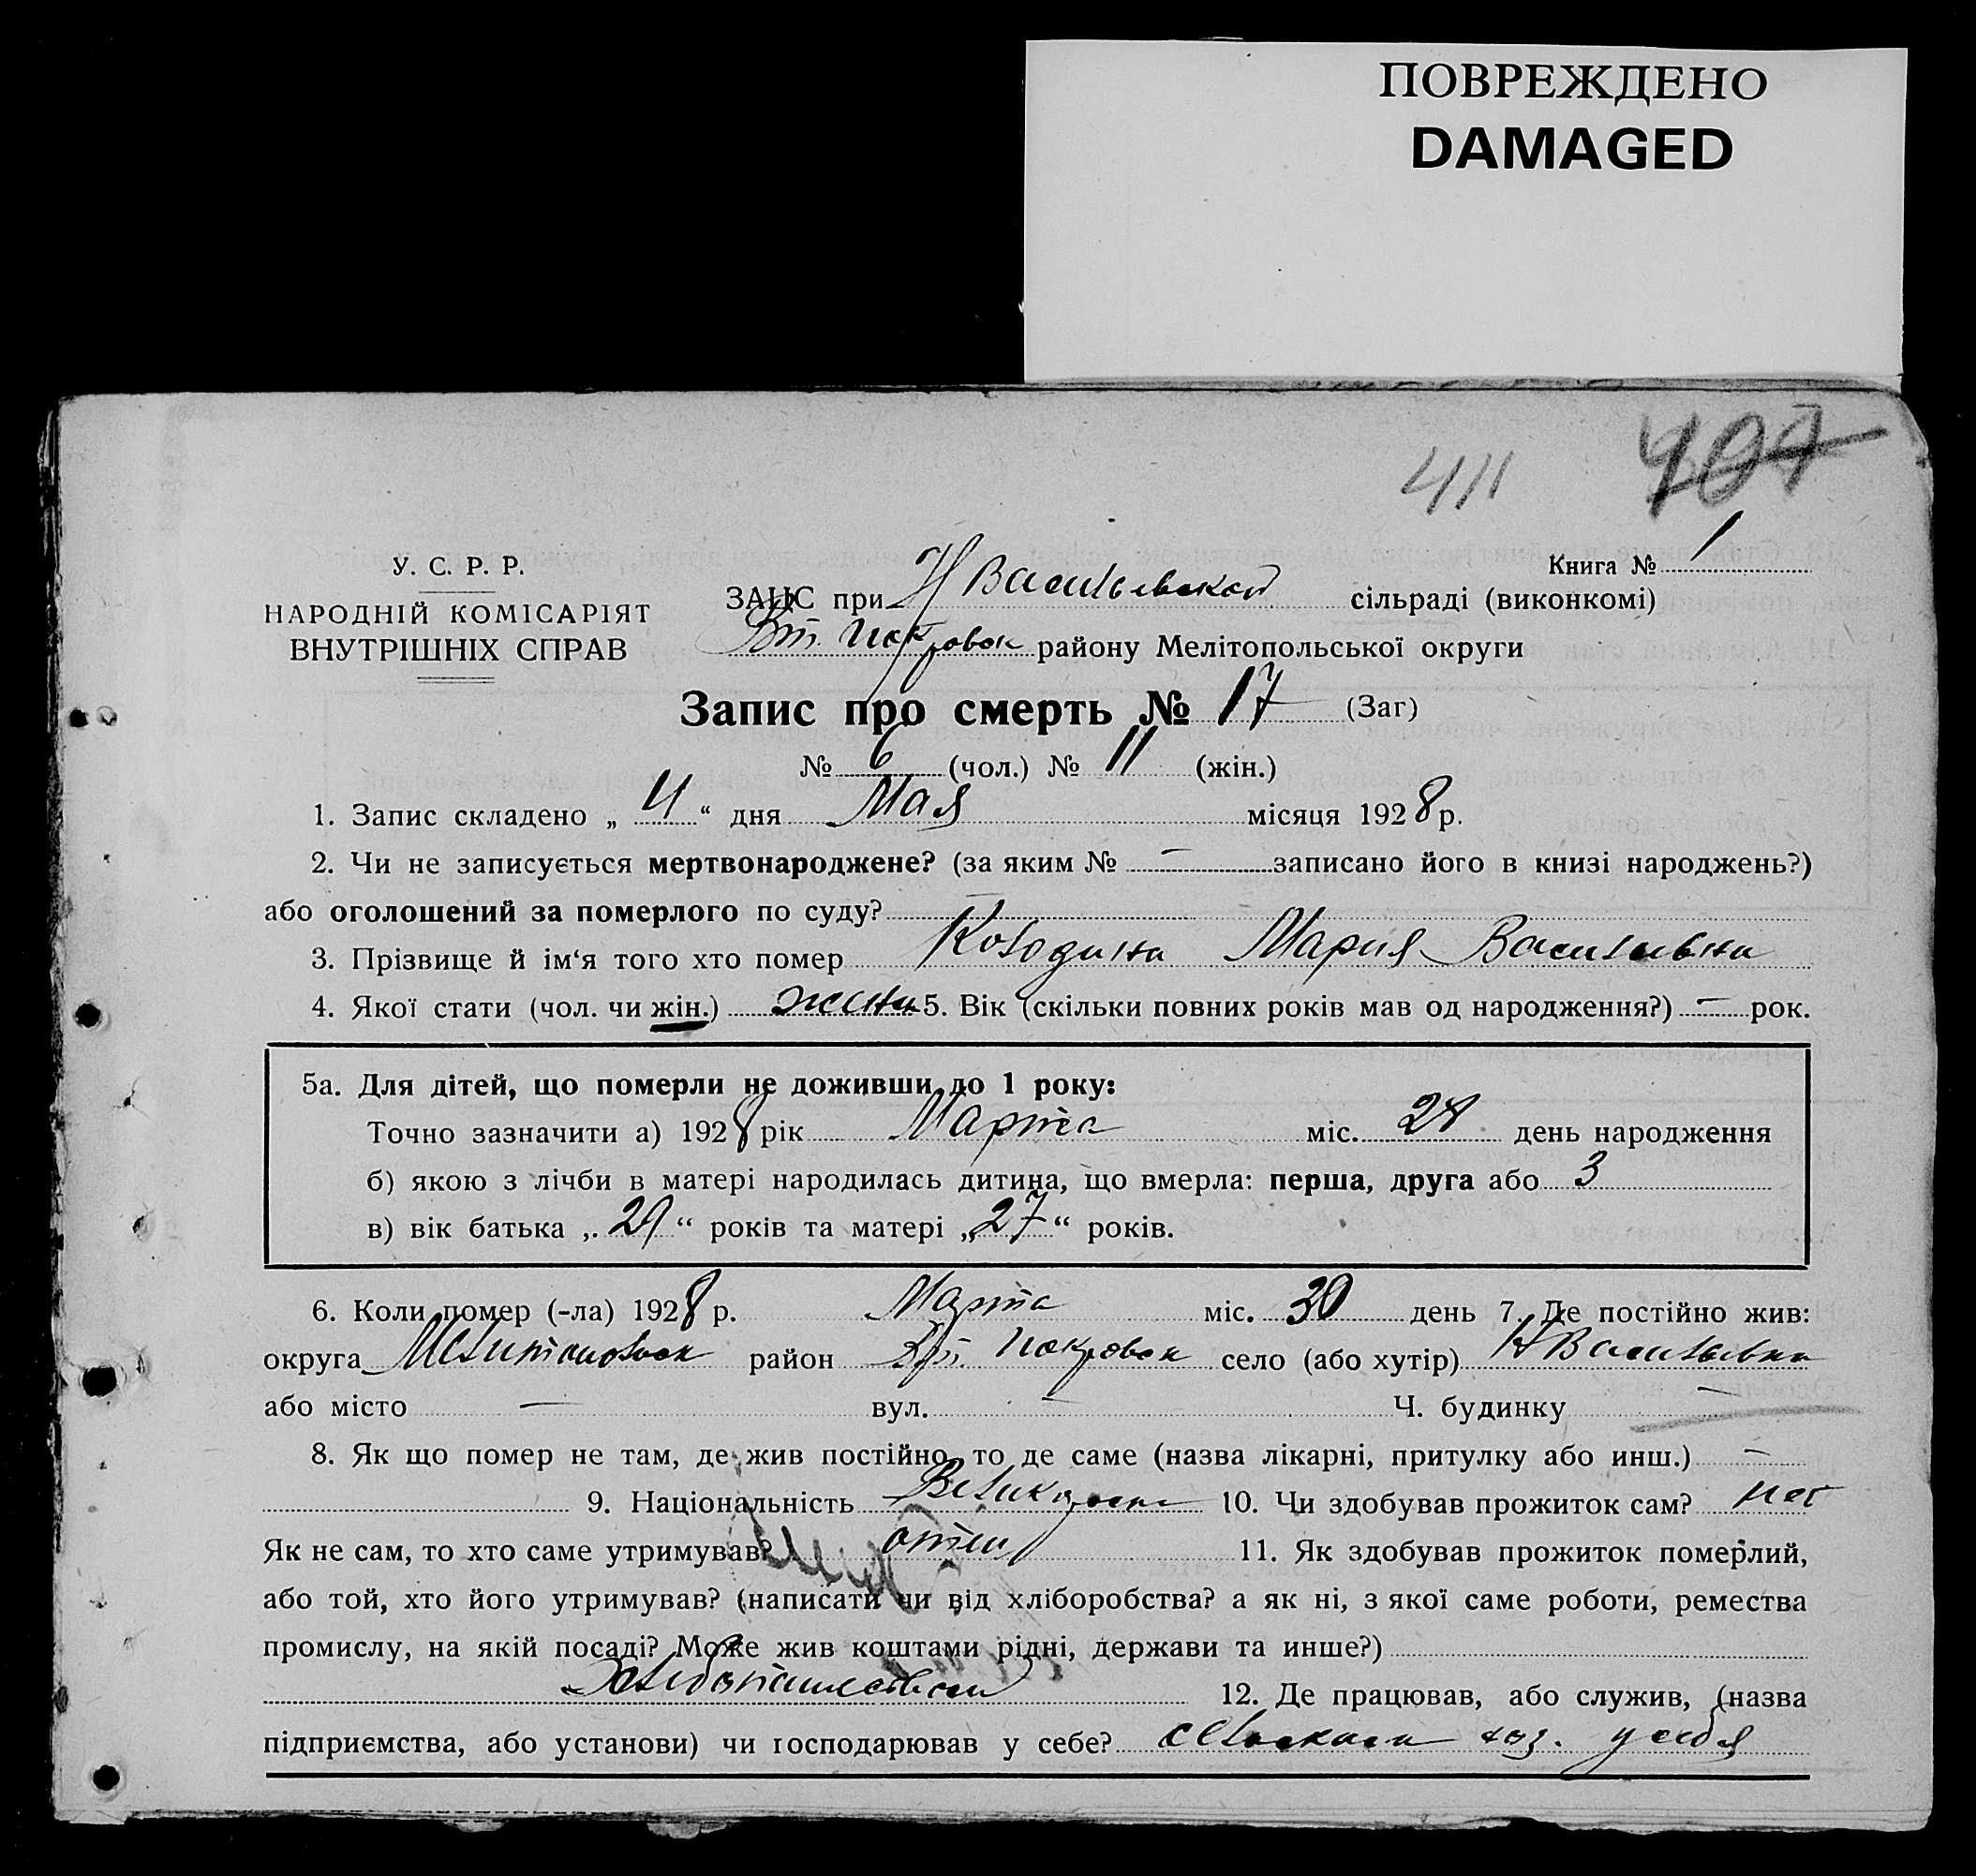 ПОВРЕЖДЕНО
DAMAGED
411 407
У. С. Р. Р.
НАРОДНІЙ КОМІСАРІЯТ
ВНУТРІШНІХ СПРАВ
Книга № 1
ЗАЦС при Н Васильевской сільраді (виконкомі)
Вт. Покровск району Мелітопольської округи
Запис про смерть № 17 (Заг)
№ 6 (чол.) № 11 (жін.)
1. Запис складено „ 4 “ дня Мая місяця 1928 р.
2. Чи не записується мертвонароджене? (за яким № — записано його в книзі народжень?)
або оголошений за померлого по суду? —
3. Прізвище й ім‘я того хто помер Колодина Мария Васильевна
4. Якої стати (чол. чи жін.) женск 5. Вік (скільки повних років мав од народження?) — рок.
5а. Для дітей, що померли не доживши до 1 року:
Точно зазначити а) 1928 рік Марта міс. 28 день народження
б) якою з лічби в матері народилась дитина, що вмерла: перша, друга або 3
в) вік батька „ 29 “ років та матері „ 27 “ років.
6. Коли помер (-ла) 1928 р. Марта міс. 30 день 7. Де постійно жив:
округа Мелитопольск район Вт. Покровск село (або хутір) Н Васильевка
або місто — вул. — Ч. будинку —
8. Як що помер не там, де жив постійно, то де саме (назва лікарні, притулку або инш.) —
9. Національність 10. Чи здобував прожиток сам? нет
Як не сам, то хто саме утримував? отец 11. Як здобував прожиток померлий,
або той, хто його утримував? (написати чи від хліборобства? а як ні, з якої саме роботи, ремества
промислу, на якій посаді? Може жив коштами рідні, держави та инше?)
Хлебопашеством 12. Де працював, або служив, (назва
підприємства, або установи) чи господарював у себе? сельским хоз. у себя